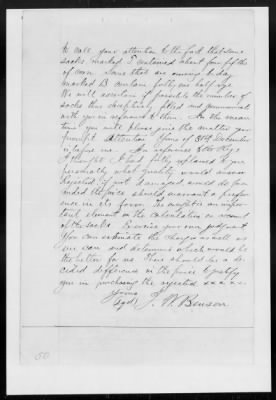 to call your attention to the fact that some
sacks marked I contained about four fifths
of corn. Some that are coming to day
marked B contain forty one half Rye
We will ascertain if possible the number of
sacks thus deceptively filled and communicate
with you in reference to them. In the mean
time you will please give the matter your
prompt attention. Yours of 31st December
is before me. In reference to the Rye
I thought I had fully explained to you
personally what quality would answer
Rejected if not damaged would do provided
the price should warrant a preference
in its favor. The weight is an important
element in the calculation on account
of the sacks. Exercise your own judgment
You can estimate the charges as well as
we can and determine which would be
the better for us. There should be a decided
difference in the price to justify
you in purchasing the rejected xxx
Yours
(sgd) J. W. Benson
50